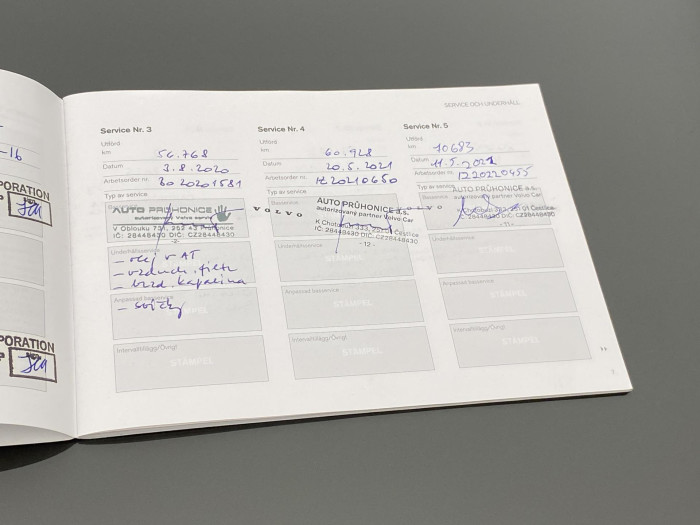 SERVICE OCH UNDERHÅLL
-16
PORATION
PORATION
Service Nr. 3
Utförd
km 56.768
Datum 3.8.2020
Arbetsorder nr.
Typ av service
AUTO PRŮHONICE
autorizovaný servis
V Oblouku 731, 252 43 Průhonice
IČ: 28448430 DIČ: CZ28448430
Underhållsservice
- olej v AT
- vzduch. filtr
- brzd. kapalina
Anpassad basservice
- svíčky
STÄMPEL
Intervalltillägg/Övrigt
STÄMPEL
Service Nr. 4
Utförd
km 60.928
Datum 20.5.2021
Arbetsorder nr.
Typ av service
Basservice
VOLVO
AUTO PRŮHONICE a.s.
autorizovaný partner Volvo Car
IČ: 28448430 DIČ: CZ28448430
- 12 -
Underhållsservice
STÄMPEL
Anpassad basservice
STÄMPEL
Intervalltillägg/Övrigt
STÄMPEL
Service Nr. 5
Utförd
km 70683
Datum
Arbetsorder nr. 1220220455
Typ av service
Basservice
VOLVO
AUTO PRŮHONICE a.s.
autorizovaný partner Volvo Car
IČ: 28448430 DIČ: CZ28448430
Underhållsservice
STÄMPEL
Anpassad basservice
STÄMPEL
Intervalltillägg/Övrigt
STÄMPEL